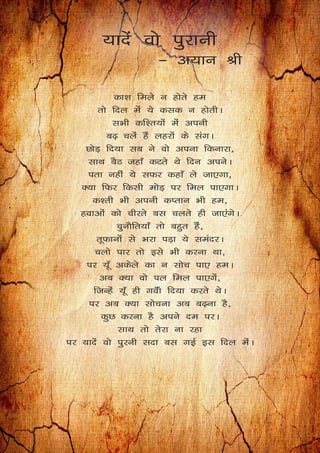 यादें वो पुरानी
- अयान श्री
काश मिले न होते हम
तो दिल में ये कसक न होती।
सभी कश्तियों में अपनी
बढ़ चलें हैं लहरों के संग।
छोड़ दिया सब ने वो अपना किनारा,
साथ बैठ जहाँ कटते थे दिन अपने।
पता नहीं ये सफर कहाँ ले जाएगा,
क्या फिर किसी मोड़ पर मिल पाएगा।
कश्ती भी अपनी कप्तान भी हम,
हवाओं को चीरते बस चलते ही जाएंगे।
चुनौतियाँ तो बहुत हैं,
तूफानों से भरा पड़ा ये समंदर।
चलो पार तो इसे भी करना था,
पर यूँ अकेले का न सोच पाए हम।
अब क्या वो पल मिल पाएगें,
जिन्हें यूँ ही गवाँ दिया करते थे।
पर अब क्या सोचना अब बढ़ना है,
कुछ करना है अपने दम पर।
साथ तो तेरा ना रहा
पर यादें वो पुरनी सदा बस गई इस दिल में।